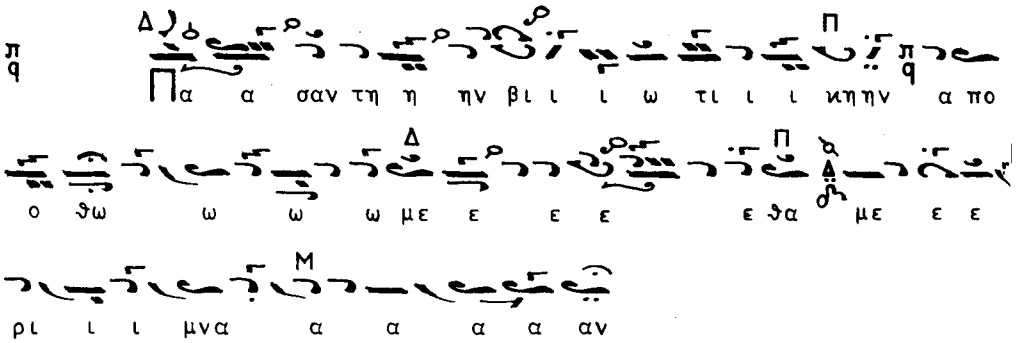 Πα α σαν τη η ην βι ι ι ω τι ι ι κη ην α πο
ο θω ω ω ω με ε ε ε ε θα με ε ε
ρι ι ι μνα α α α α αν